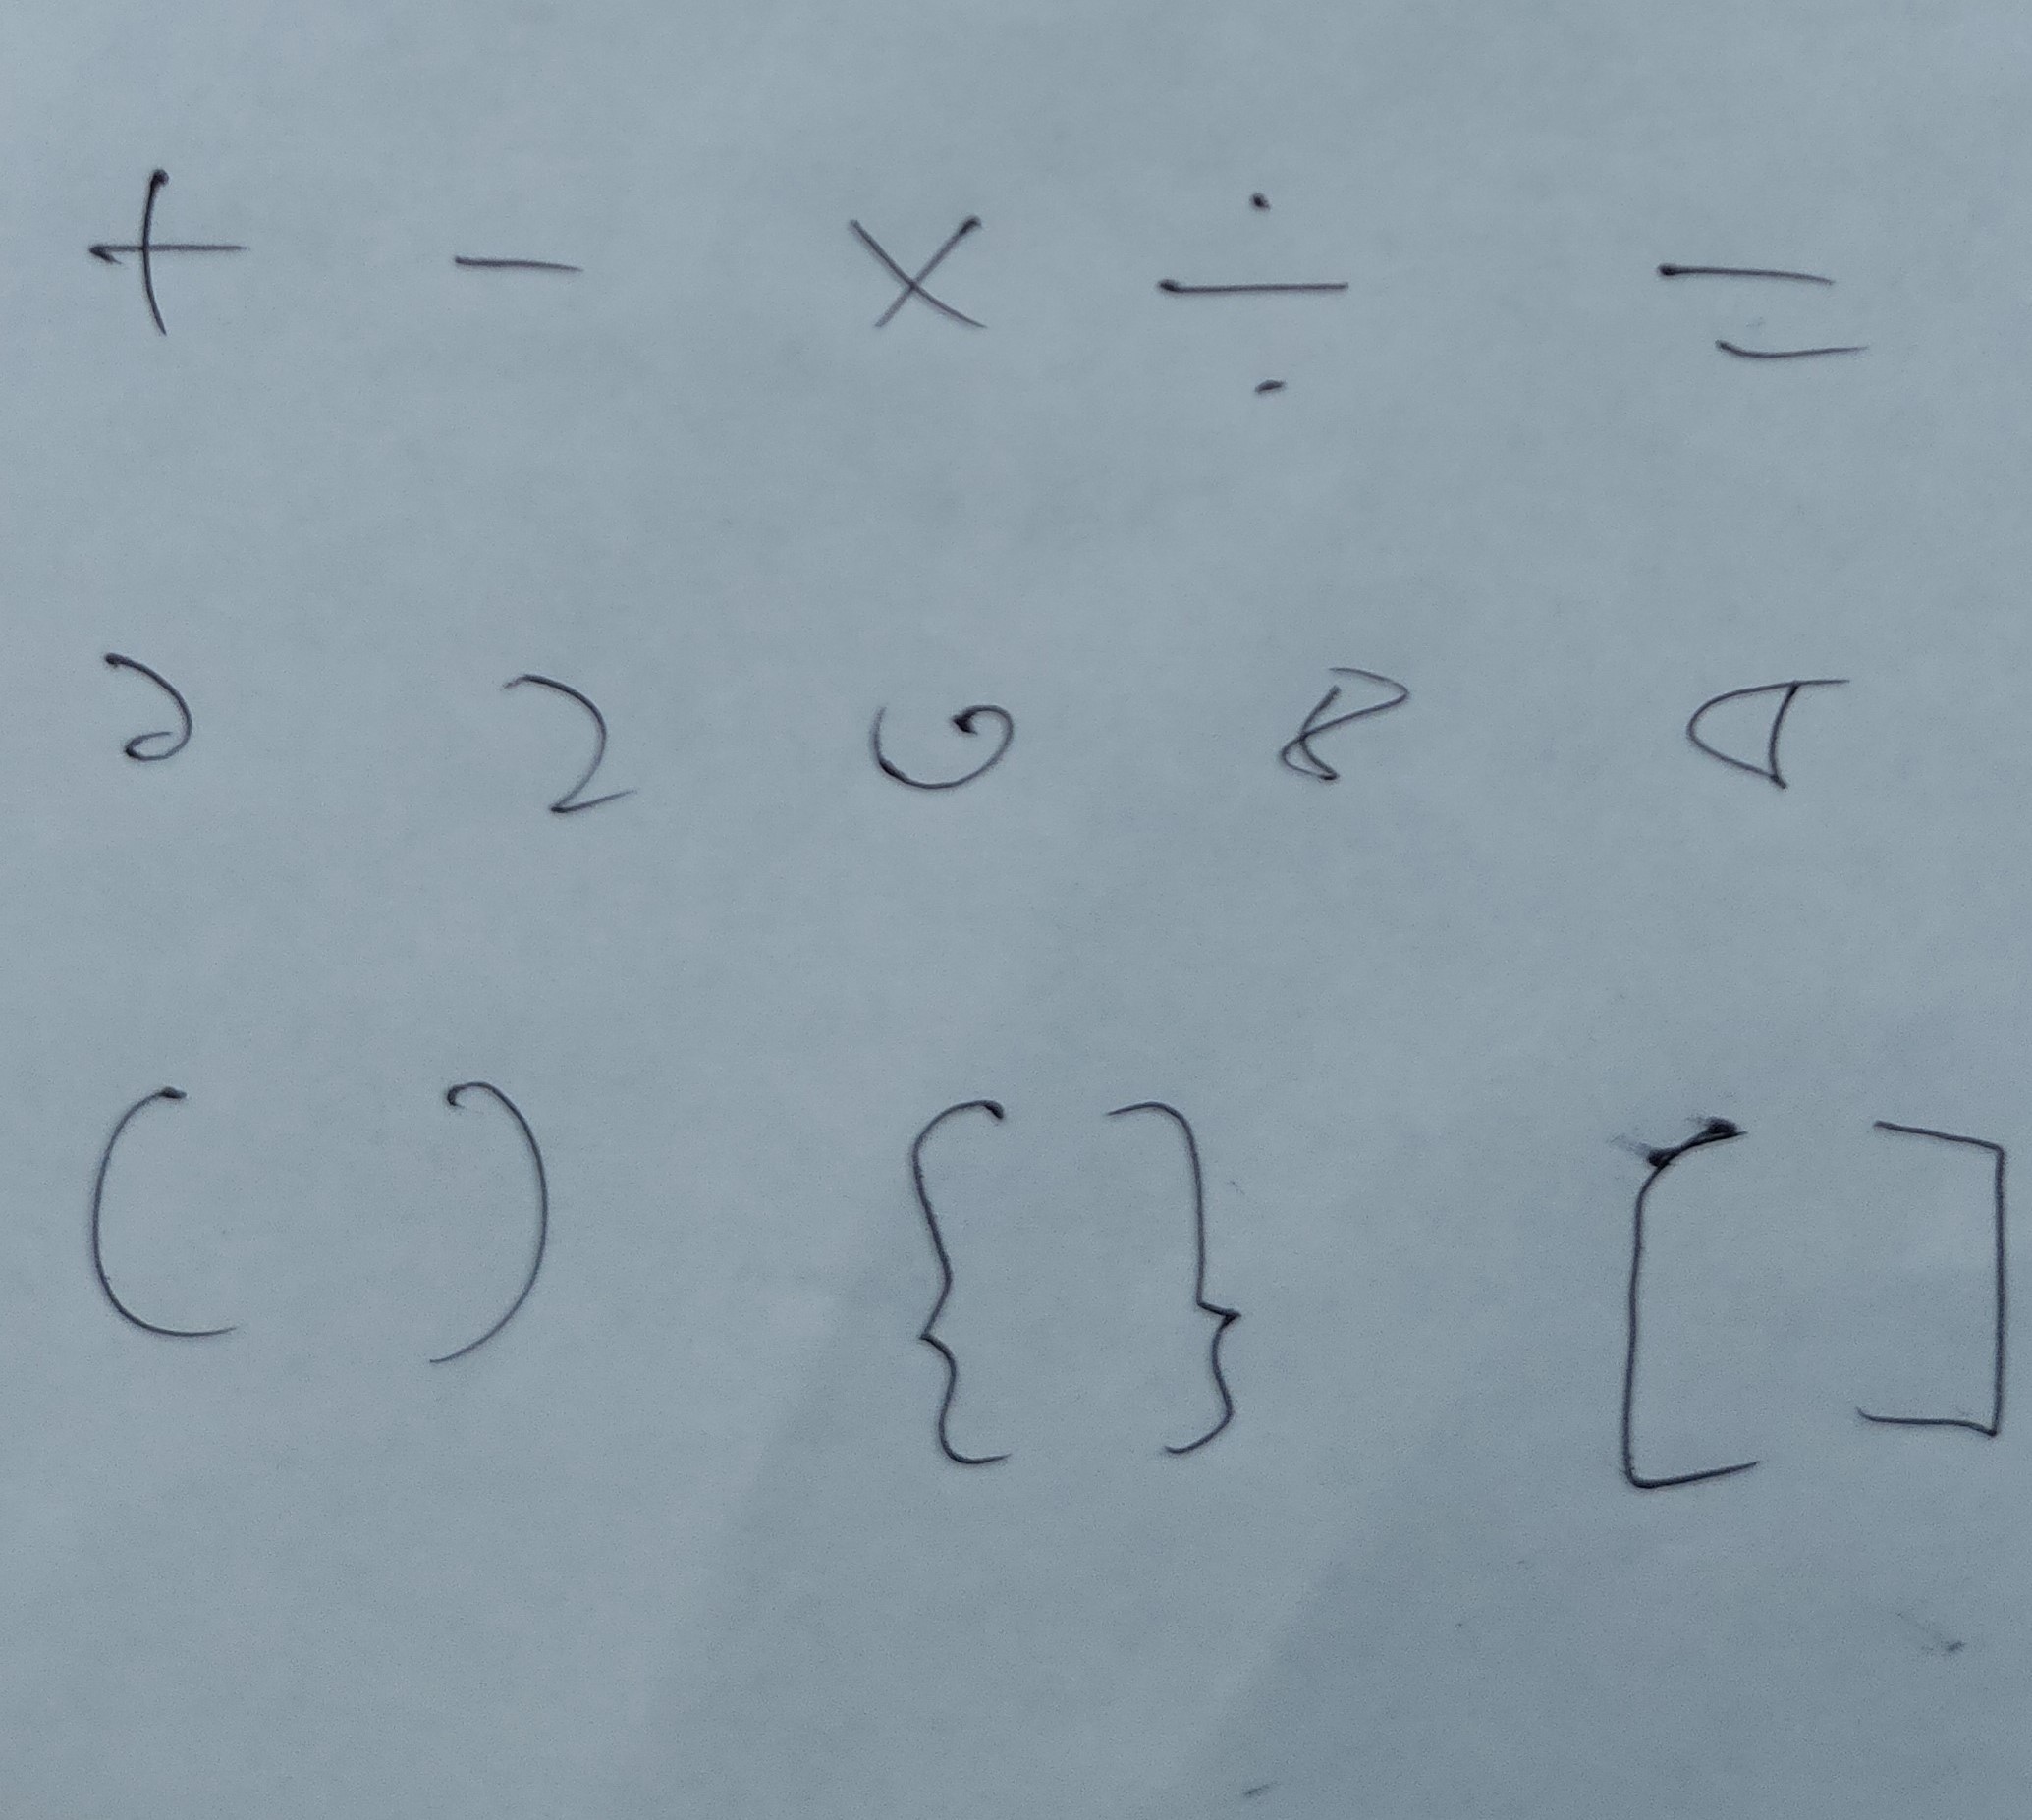 + - × ÷ =
১ ২ ৩ ৪ ৫
( ) { } [ ]